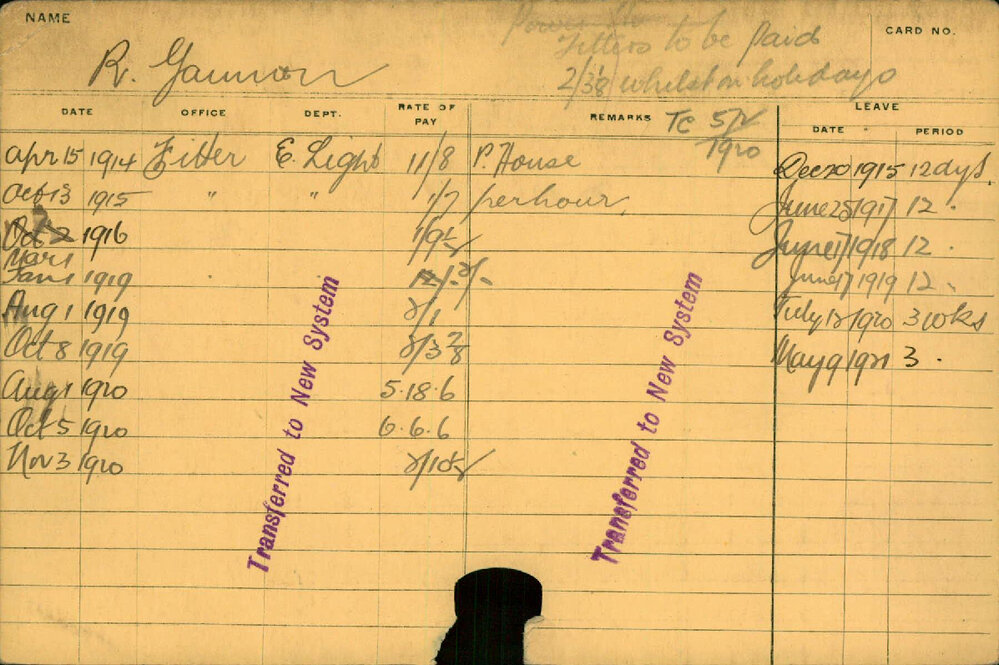 NAME
CARD NO.
Fitters to be paid
R. Gannon
2/3⅛ whilst on holidays
DATE OFFICE DEPT. RATE OF PAY REMARKS TC 5/2 1920 LEAVE
DATE PERIOD
Apr 15 1914 Fitter E. Light 11/8 P. House Dec 20 1915 12 dys.
Oct 13 1915 " " 1/7 per hour June 25 1917 12 "
Oct 2 1916 1/9½ June 17 1918 12 "
Mar 1
Jan 1 1919 2/- June 17 1919 12 "
Aug 1 1919 2/1 July 12 1920 3 wks
Oct 8 1919 2/3 7/8 May 9 1921 3 "
Aug 1 1920 5.18.6
Oct 5 1920 6.6.6
Nov 3 1920 2/10½
Transferred to New System
Transferred to New System